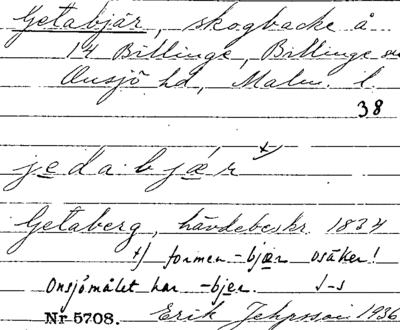 Getabjär, skogbacke å
14 Billinge, Billinge sn
Onsjö hd, Malm. l.
38
jedabjær x)
Getaberg, hävdebeskr. 1834
x) formen -bjær osäker!
Onsjömålet har -bjer. J-s
Nr 5708. Erik Jeppsson 1936